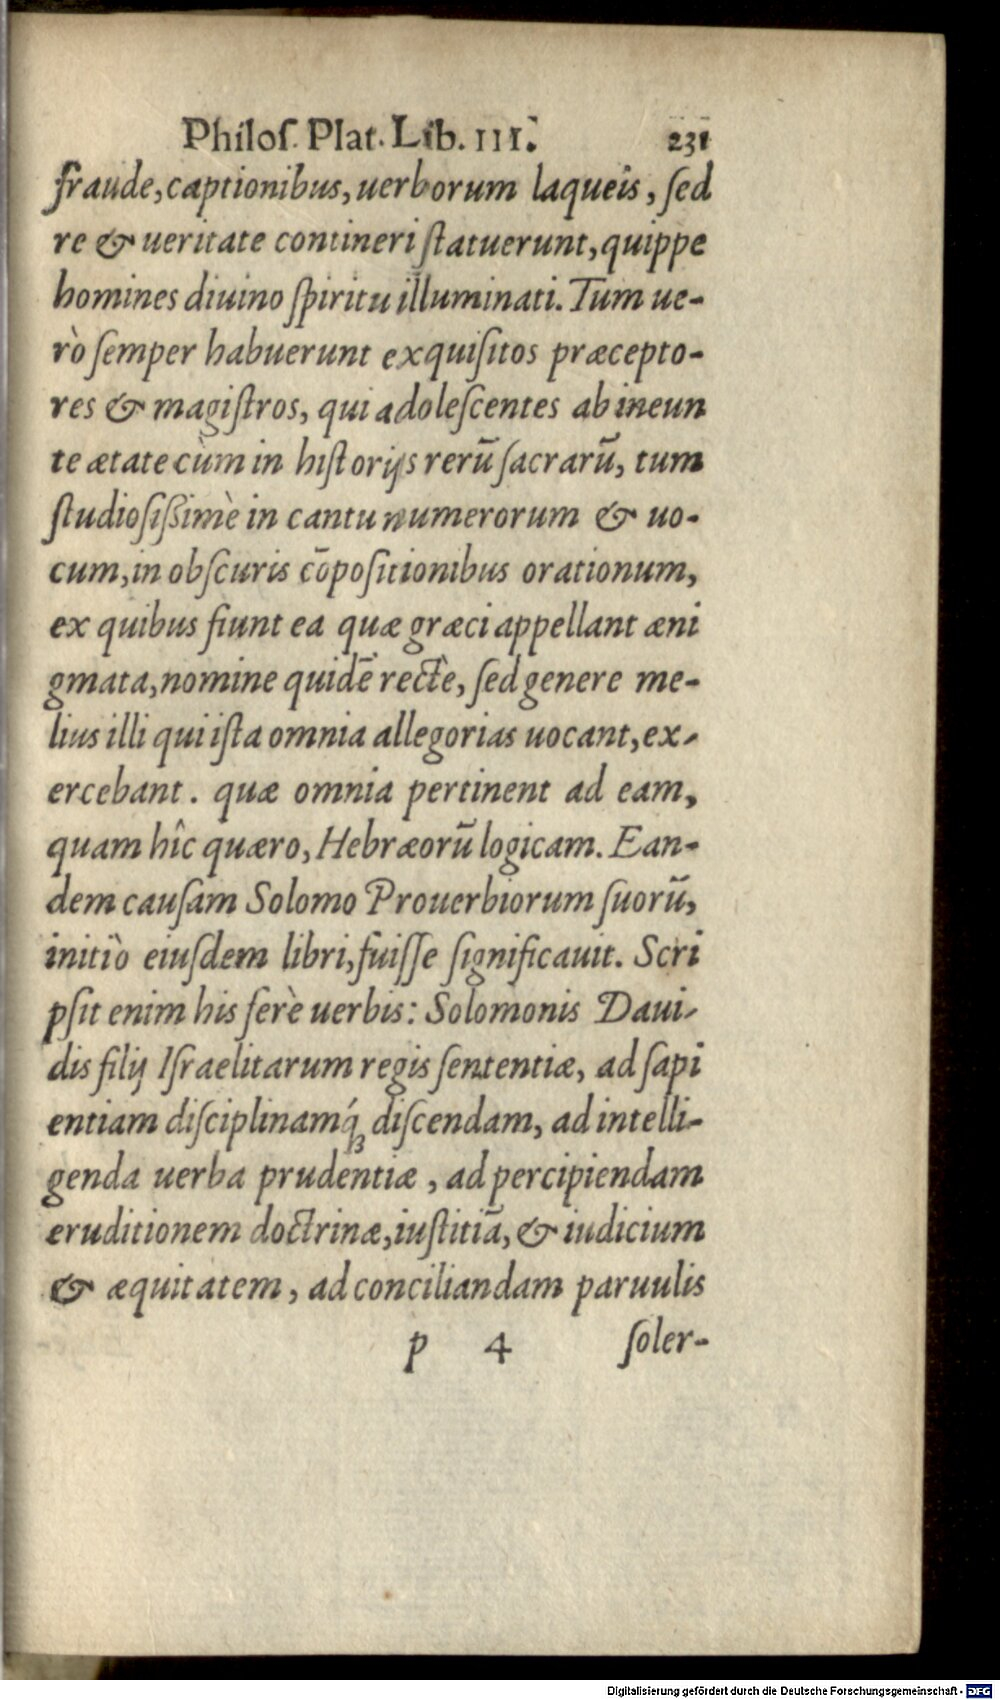 Philoſ. Plat. Lib. III. 231
fraude, captionibus, uerborum laqueis, ſed
re & ueritate contineri ſtatuerunt, quippe
homines diuino ſpiritu illuminati. Tum ue-
rò ſemper habuerunt exquiſitos præcepto-
res & magiſtros, qui adoleſcentes ab ineun
te ætate cùm in hiſtorijs rerū ſacrarū, tum
ſtudioſißimè in cantu numerorum & uo-
cum, in obſcuris cōpoſitionibus orationum,
ex quibus fiunt ea quæ græci appellant æni
gmata, nomine quidē rectè, ſed genere me-
lius illi qui iſta omnia allegorias uocant, ex-
ercebant. quæ omnia pertinent ad eam,
quam hîc quæro, Hebræorū logicam. Ean-
dem cauſam Solomo Prouerbiorum ſuorū,
initiò eiuſdem libri, fuiſſe ſignificauit. Scri
pſit enim his ferè uerbis: Solomonis Daui-
dis filij Iſraelitarum regis ſententiæ, ad ſapi
entiam diſciplinamq́; diſcendam, ad intelli-
genda uerba prudentiæ, ad percipiendam
eruditionem doctrinæ, iuſtitiā, & iudicium
& æquitatem, ad conciliandam paruulis
p 4 ſoler-
Digitalisierung gefördert durch die Deutsche Forschungsgemeinschaft - DFG